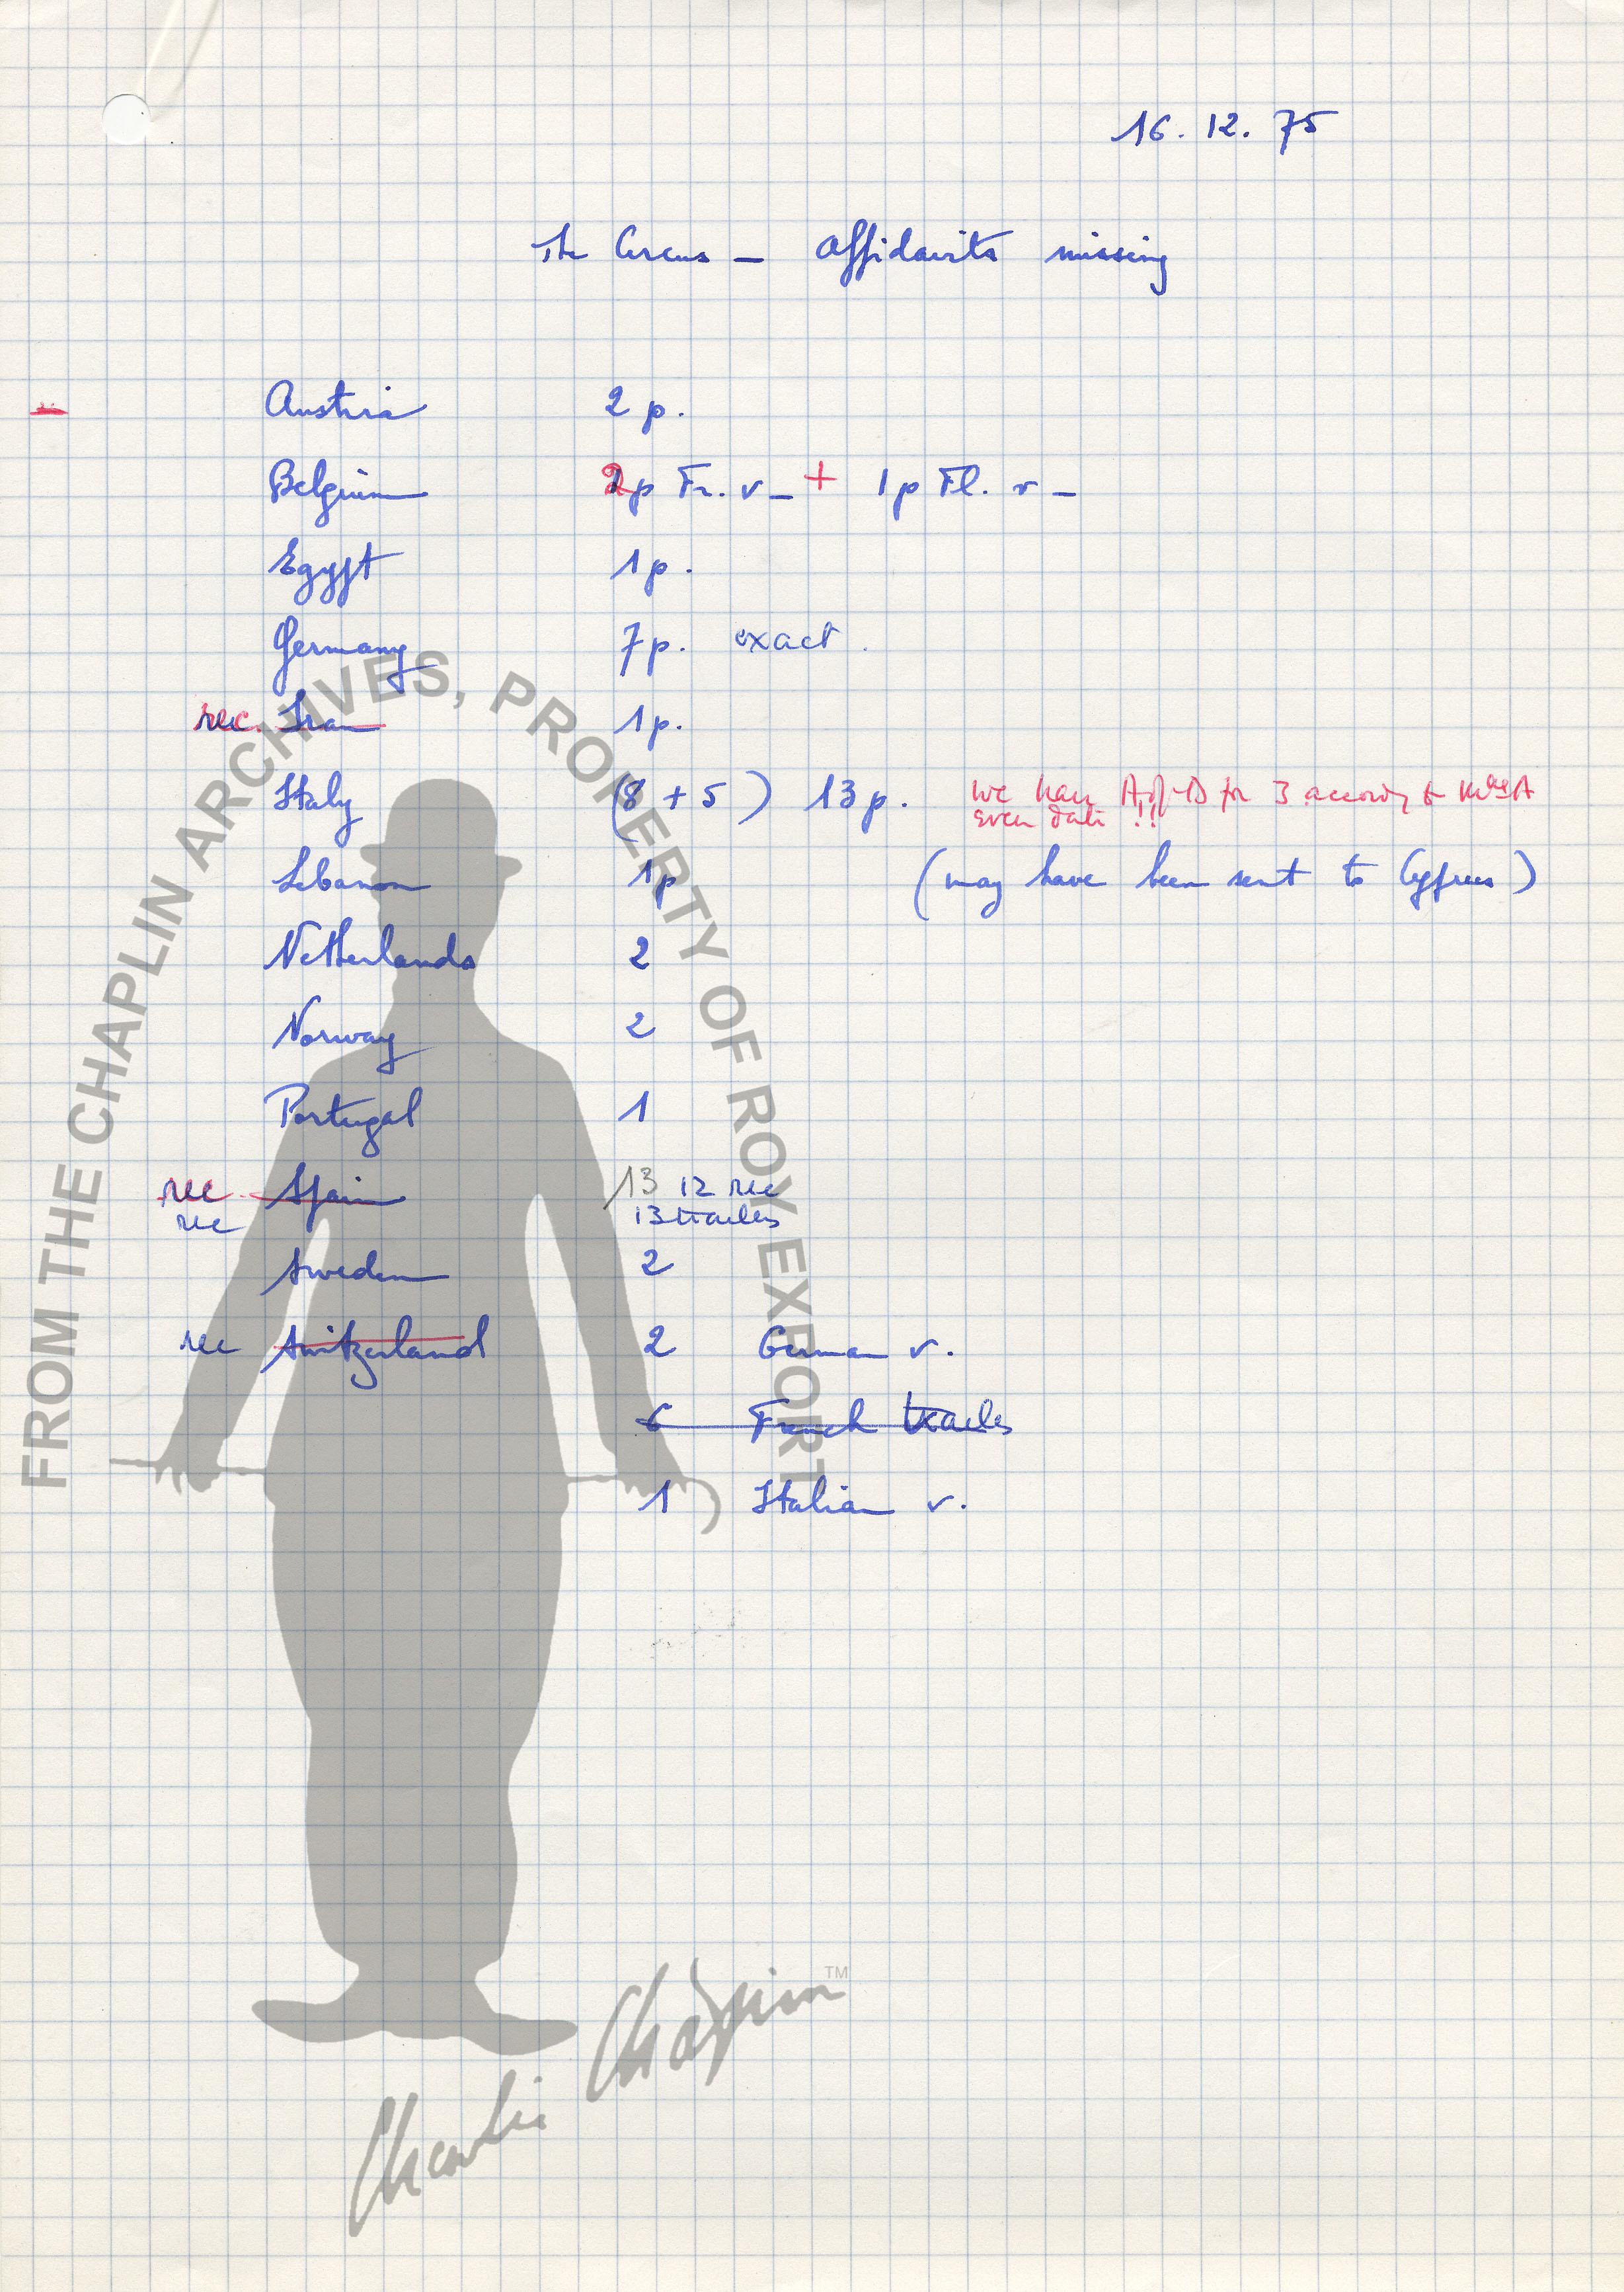 16. 12. 75
The Circus - Affidavits missing
Austria 2 p.
Belgium 2p Fr. v - + 1p Fl. v -
Egypt 1p.
Germany 7p. exact.
rec. Iran 1p.
Italy (8 + 5) 13 p. we have A of D for 3 according to
even date !!
Lebanon 1p (may have been sent to Cyprus)
Netherlands 2
Norway 2
Portugal 1
rec. Spain 13 12 rec
rec 13 trailers
Sweden 2
rec Switzerland 2 German v.
6 French trailers
1 Italian v.
FROM THE CHAPLIN ARCHIVES, PROPERTY OF ROY EXPORT
Charlie Chaplin TM